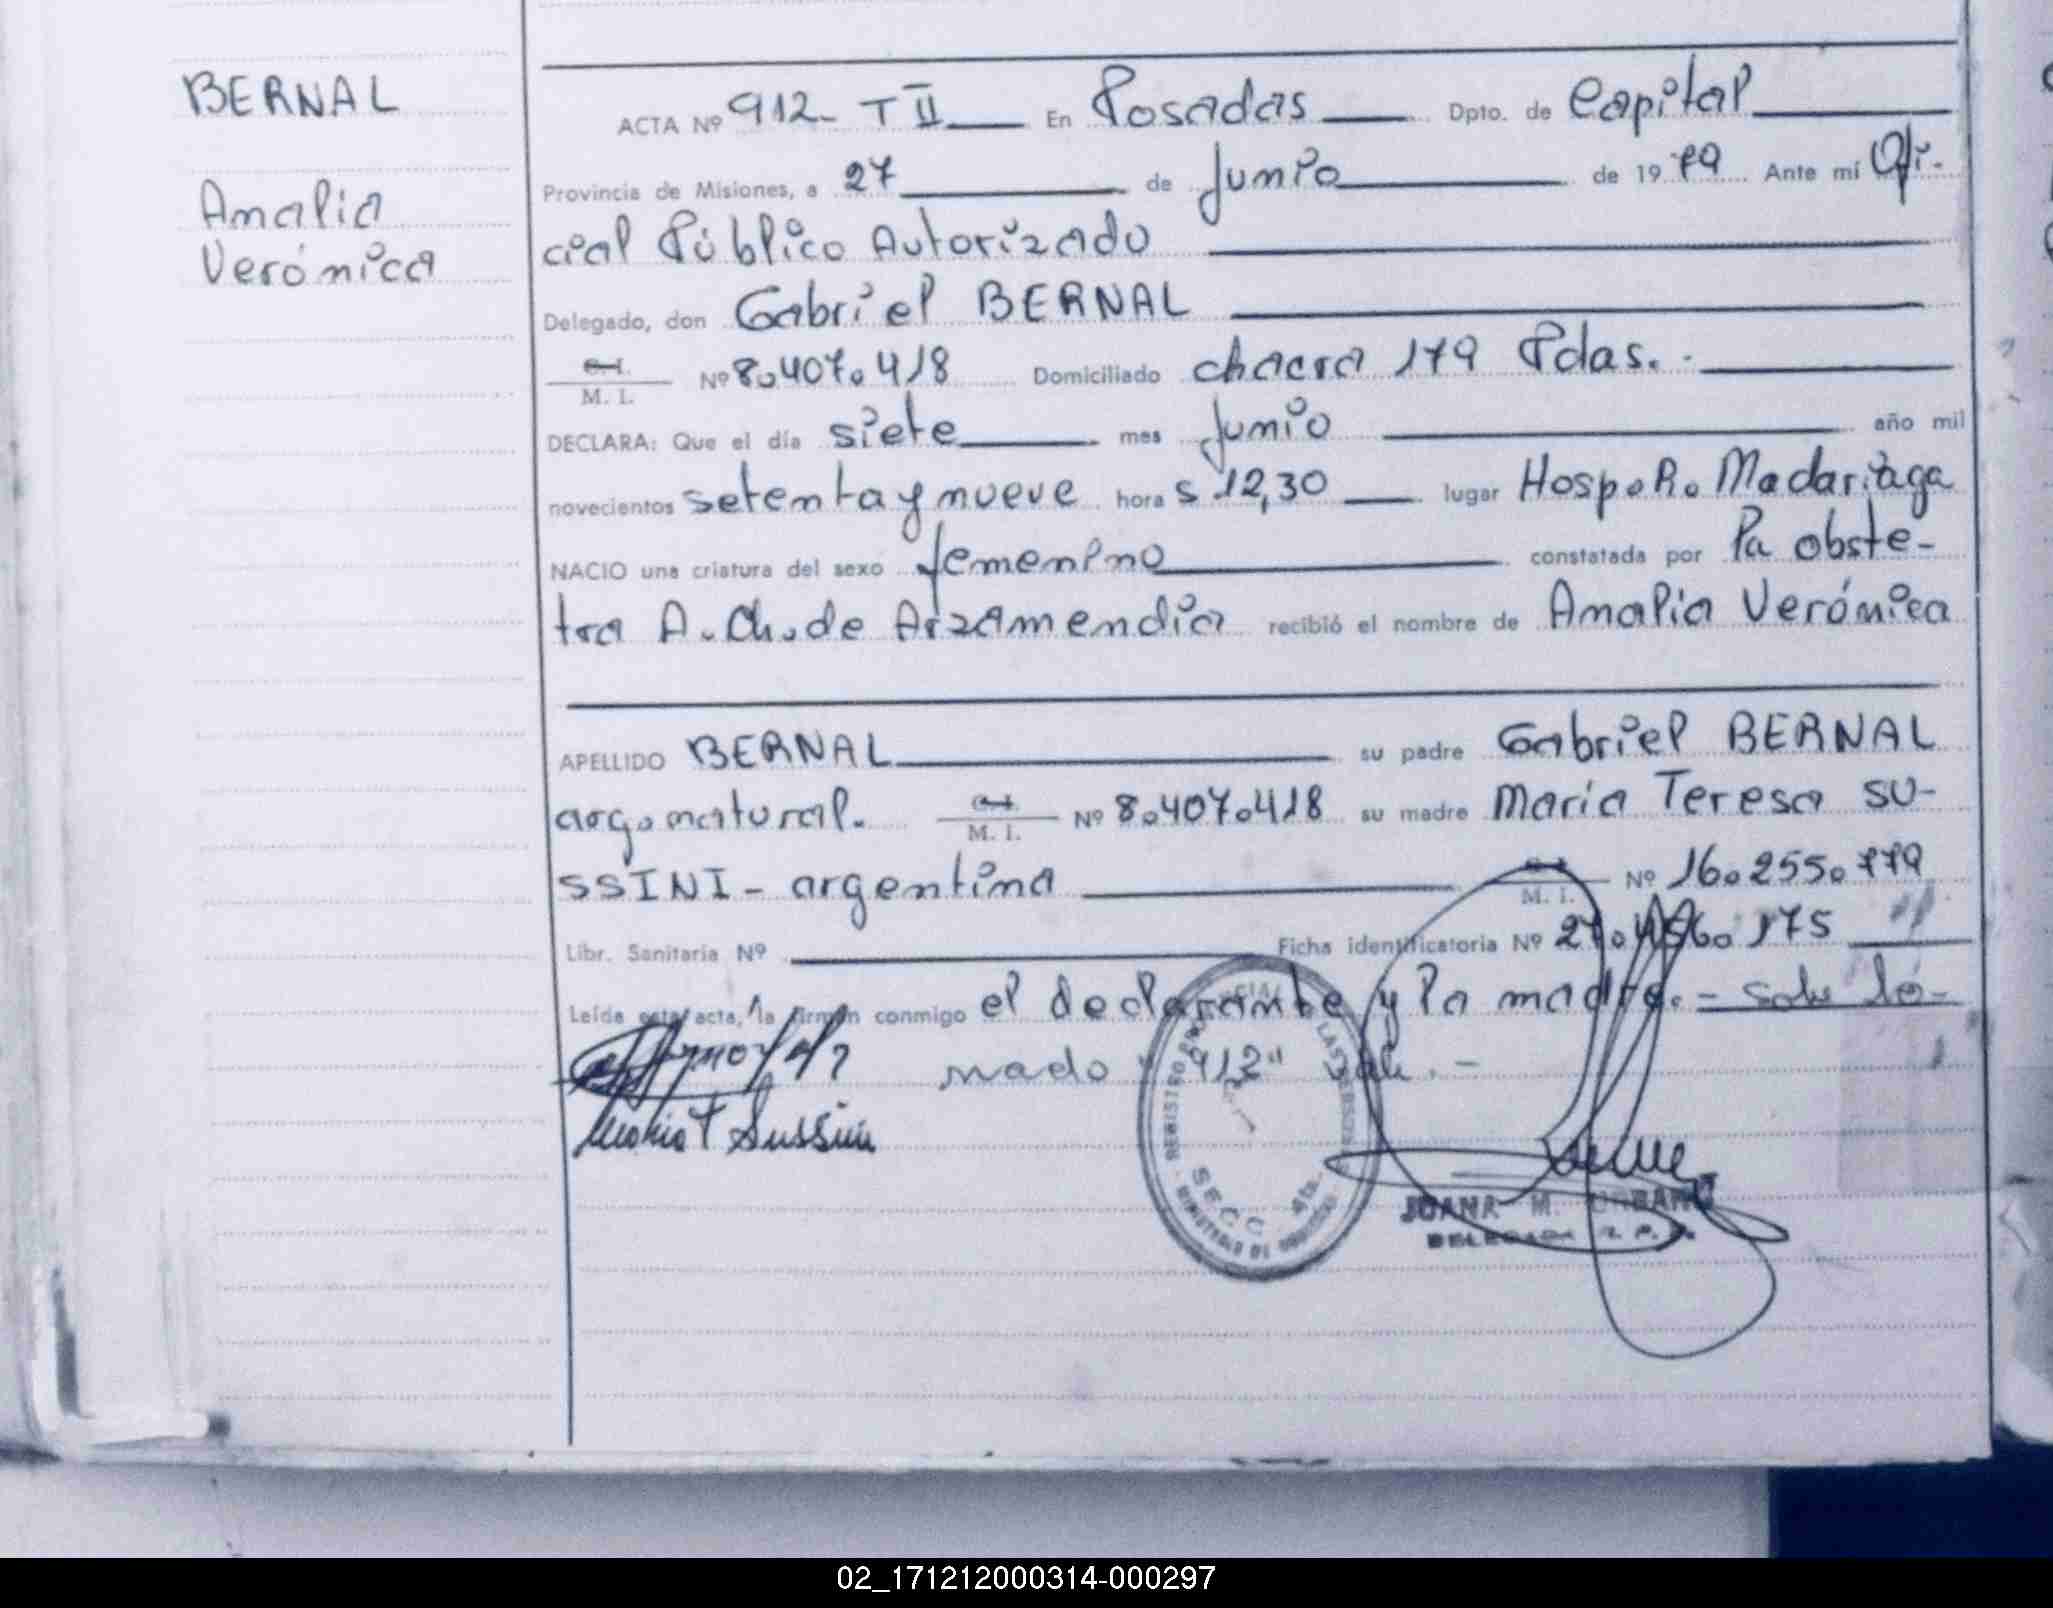 BERNAL
Amalia
Verónica
ACTA Nº 912- T II En Posadas Dpto. de Capital
Provincia de Misiones, a 27 de Junio de 19 79 Ante mí Ofi-
cial Público Autorizado
Delegado, don Gabriel BERNAL
M. I. Nº 8.407.418 Domiciliado chacra 179 Pdas.-
DECLARA: Que el día siete mes Junio año mil
novecientos setenta y nueve hora s 12,30 lugar Hosp. R. Madariaga
NACIO una criatura del sexo femenino constatada por la obste-
tra A. Ch. de Arzamendia recibió el nombre de Amalia Verónica
APELLIDO BERNAL su padre Gabriel BERNAL
arg. natural. M. I. Nº 8.407.418 su madre María Teresa SU-
SSINI - argentina M. I. Nº 16.255.779
Libr. Sanitaria Nº Ficha identificatoria Nº 27.456.175
Leída esta acta, la firman conmigo el declarante y la madre.-
"912" vale.-
Maria T Sussini
REGISTRO PROVINCIAL DE LAS PERSONAS
SECC. 4ta.
MINISTERIO DE GOBIERNO
JUANA M. URBANO
DELEGADA R. P.
02_171212000314-000297